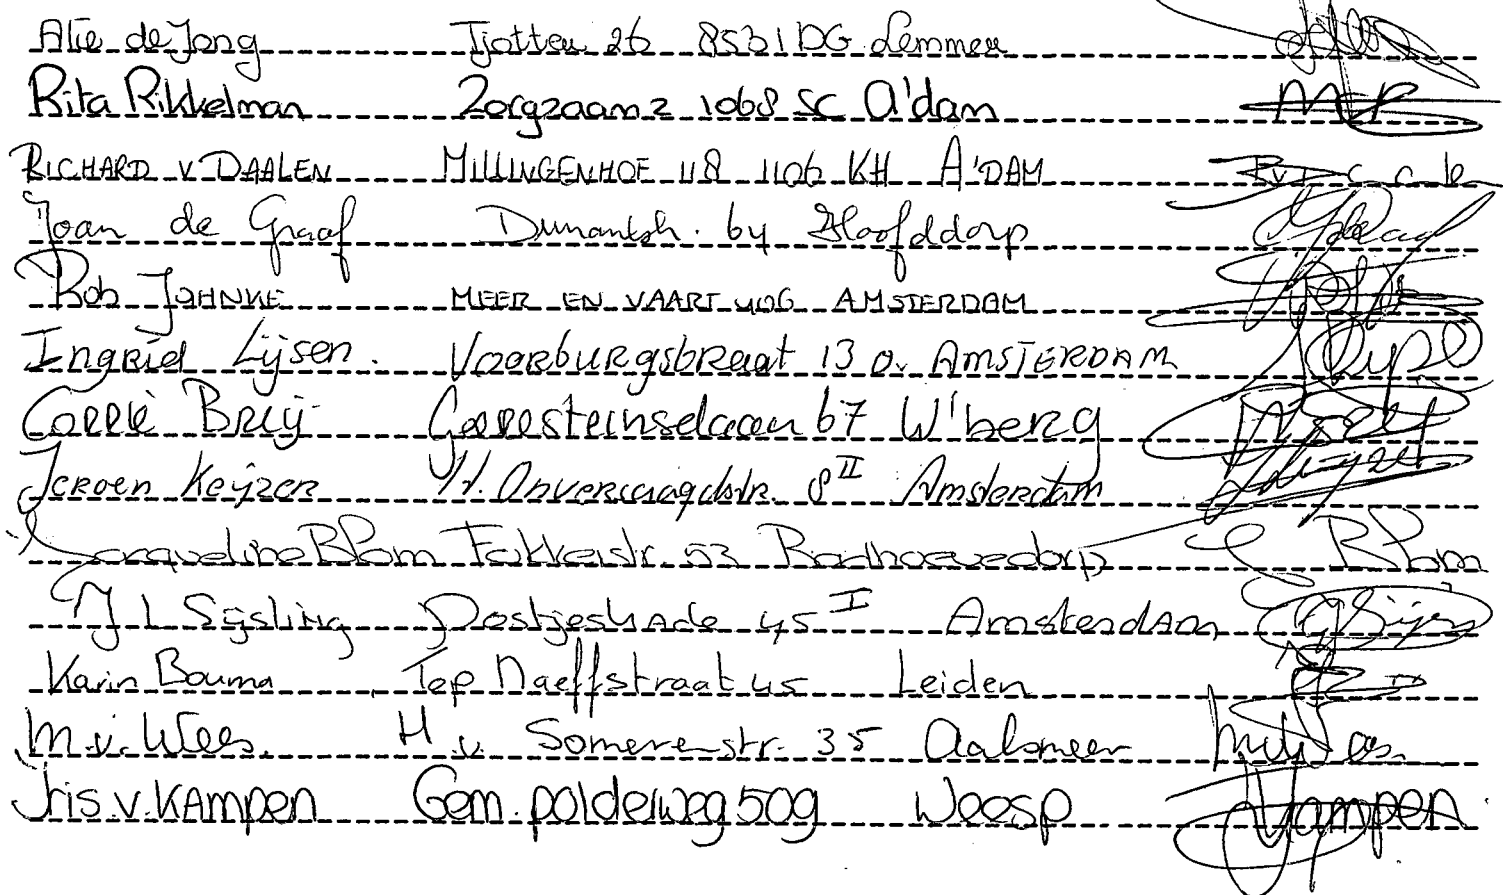 Atie de Jong Tjotter 26 8531 DG Lemmer
Rita Rikkelman Zorgzaam 2 1068 SC A'dam
RICHARD v DAALEN MILLINGENHOF 118 1106 KH A'DAM
Joan de Graaf Dunantstr. by Hoofddorp
Rob JOHNKE MEER EN VAART 40G AMSTERDAM
Ingrid Lijsen. Voorburgstraat 13 AMSTERDAM
Corrie Breij 67 W'berg
Jeroen Keijzer 8 II Amsterdam
Jacqueline Blom Fokkerstr. 53 Badhoevedorp Blom
J L Sijsling Postjeskade 45 I Amsterdam
Karin Bouma Top Naeffstraat 45 Leiden
M.v. Wees. H v. Somerenstr. 35 Aalsmeer
Iris.v.KAMPEN Gem.polderweg 509 Weesp